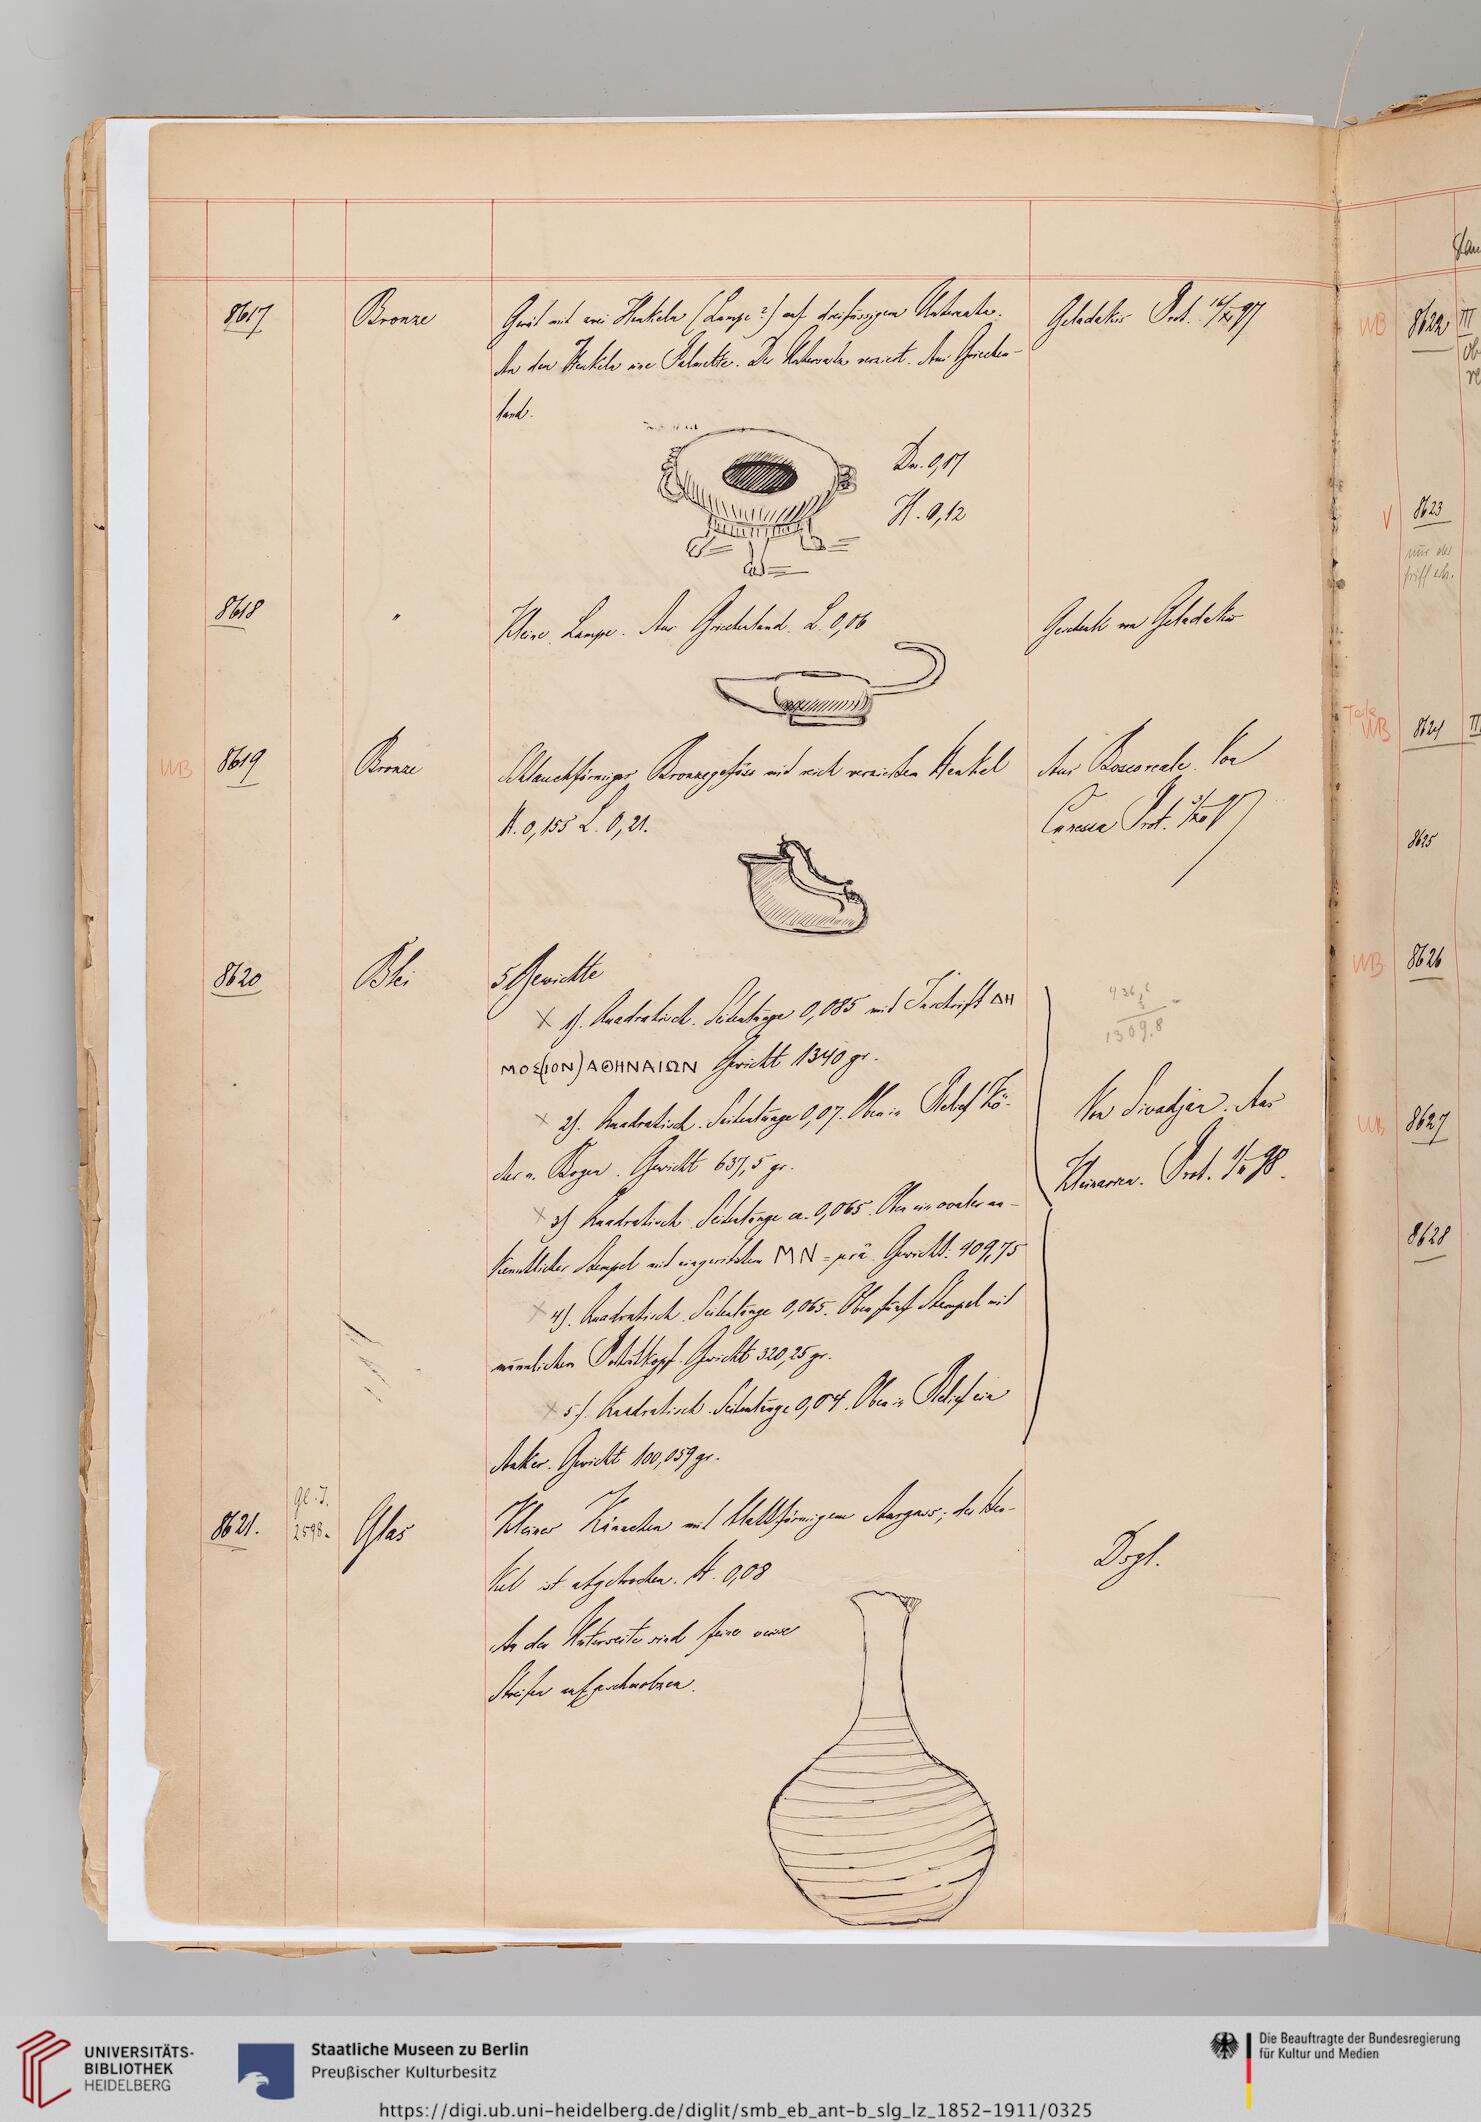 8617 Bronze Gerät mit zwei Henkeln (Lampe?) auf dreifüssigem Untersatz. Geladakis Prot. 16/XII 97
An den Henkeln eine Palmette. Der Untersatz verziert. Aus Griechen-
land.
Dm. 0,17
H. 0,12
8618 " Kleine Lampe. Aus Griechenland. L. 0,06 Geschenk von Geladakis
WB 8619 Bronze Schlauchförmiges Bronzegefäss mit reich verziertem Henkel Aus Boscoreale. Von
H. 0,155 L. 0,21. Canessa Prot.
8620 Blei 5 Gewichte
X 1). Quadratisch. Seitenlänge 0,085 mit Inschrift ΔΗ
ΜΟΣ(ΙΟΝ) ΑΘΗΝΑΙΩΝ Gewicht 1340 gr.
X 2). Quadratisch. Seitenlänge 0,07. Oben in Relief Kö-
cher u. Bogen. Gewicht 637,5 gr.
X 3) Quadratisch. Seitenlänge ca. 0,065. Oben ein ovaler un-
kenntlicher Stempel mit eingeritztem ΜΝ = μνᾶ Gewicht: 409,75
X 4). Quadratisch. Seitenlänge 0,065. Oben fünf Stempel mit
männlichem Porträtkopf. Gewicht 320,25 gr.
X 5). Quadratisch. Seitenlänge 0,04. Oben in Relief ein
Anker. Gewicht 100,059 gr.
436,6
3
1309.8
Von Sivadjan. Aus
Kleinasien. Prot. 98.
8621. Gl. I. 2598a Glas Kleines Kännchen mit blattförmigem Ausguss; der Hen-
kel ist abgebrochen. H. 0,08 Dsgl.
An der Unterseite sind feine weisse
Streifen aufgeschmolzen.
WB 8622 III
V 8623
Teile WB 8624 II
8625
WB 8626
WB 8627
8628
UNIVERSITÄTS-
BIBLIOTHEK
HEIDELBERG
Staatliche Museen zu Berlin
Preußischer Kulturbesitz
Die Beauftragte der Bundesregierung
für Kultur und Medien
https://digi.ub.uni-heidelberg.de/diglit/smb_eb_ant-b_slg_lz_1852-1911/0325